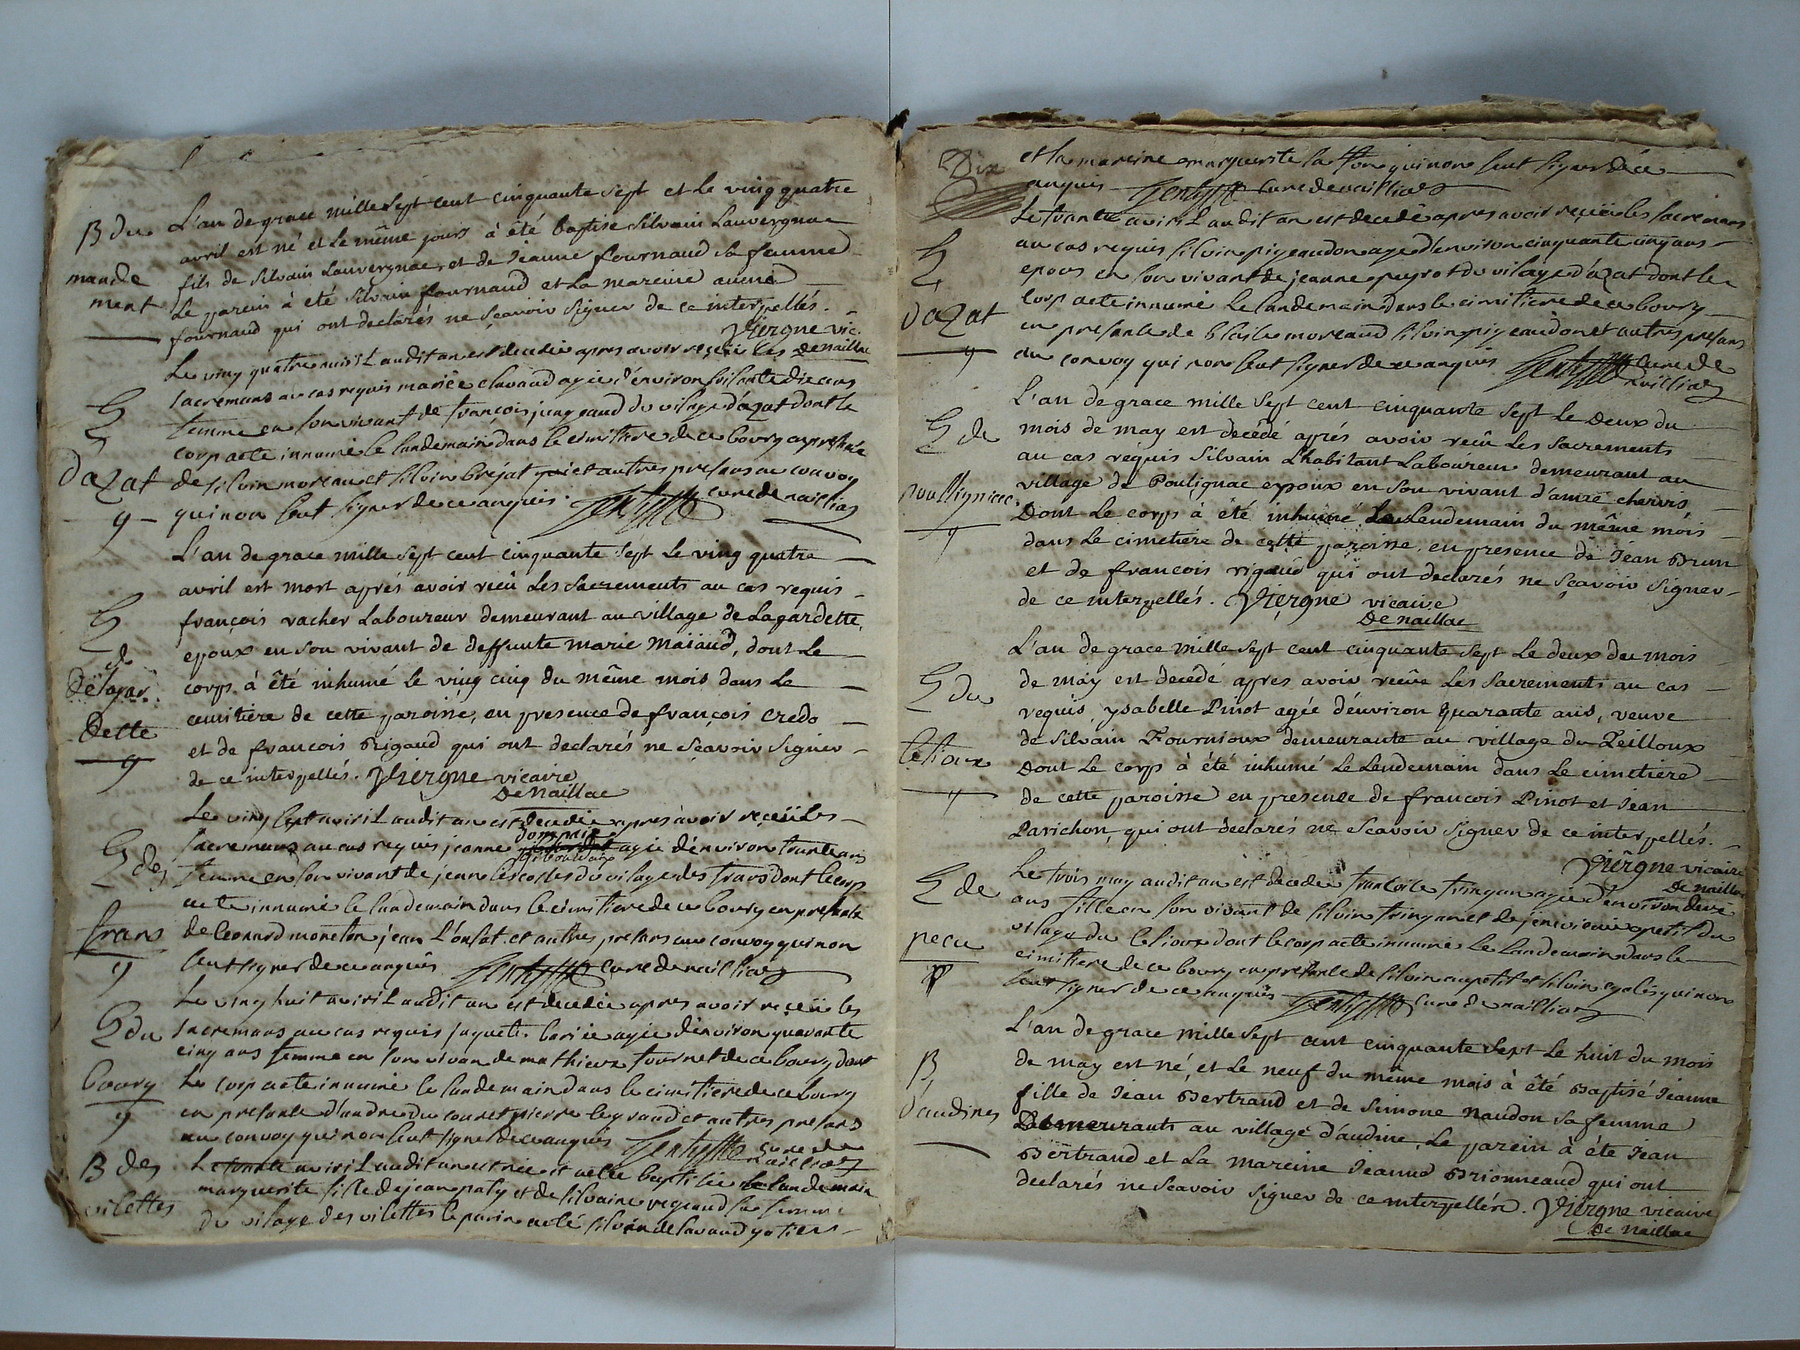 B du
mande
ment
L'an de grace mille sept cent cinquante sept et le ving quatre
avril est né et le même jours à été baptise Silvain Lauvergnac
fils de Silvain Lauvergnac, et de Jeanne fournaud sa femme
Le parein à été Silvain fournaud et La mareine aumé
fournaud qui ont declarés ne sçavoir signer de ce interpellés.
Viergne vic.
de naillac
S
dazat
9
Le ving quatre aviril audit an est decedée apres avoir reçeü les
sacremans au cas requis mariee clavaud agée d'environ soisante die ans
femme en son vivant de francois jeangeaud du vilage d'azat dont le
corp aete innumé le landemain dans le cimitiere de ce bourg en presance
de silvin moreau et silvin brejat et autres presans au convoy
qui non seut signer de ce anquis
cure de nailliac
S
de
De lagar
Dette
9
L'an de grace mille sept cent cinquante sept Le ving quatre
avril est mort aprés avoir recû Les sacrements au cas requis
françois vacher Laboureur demeurant au village de Lagardette,
epoux en son vivant de deffunte Marie Maïaud, dont Le
corps à été inhumé le ving cinq du même mois dans Le
cemitiere de cette paroisse, en presence de françois Credo
et de francois Rigaud qui ont declarés ne sçavoir signer
de ce interpellés. Viergne vicaire
De Naillac
S des
frans
9
Le ving sept aviril audit an est decedée apres avoir reçeü les
sacremans au cas requis jeanne agée d'environ trante ans
femme en son vivant de jean des vilage des frans dont le corp
aete innumé le landemain dans le cimitiere de ce bourg en presance
de Leonard moneton jean L'onsat et autres presans au convoy qui non
seut signer de ce anquis cure de nailliac
S du
bourg
9
Le ving huit aviril audit an est decedée apres avoir reçeü les
sacremans au cas requis jaquete bariée agée d'environ quarante
cinq ans femme en son vivan de mathieux tournet de ce bourg dont
Le corp aete innumé le landemain dans le cimitiere de ce bourg
en presance d'andre du couret pierre legraud et autres presans
au convoy qui non seut signer de ce anquis cure de
nailliac
B des
vilettes
Le trante aviril audit an et née et aete baptisée le landemain
marguerite fille de jean paty et de silvaine regeaud sa femme
du vilage des vilettes le parin aeté silvin delavaud potier
Dix
et la mareine marguerite la qui non seut signer de ce
anquis cure de nailliac
S
dazat
9
Le trante aviril audit an est decedé apres avoir reçeü les sacremans
au cas requis silvin pigeaudon age d'environ cinquante cinq ans
epoux en son vivant de jeanne peyrot du vilage d'azat dont le
corp aete innumé le landemain dans le cimitiere de ce bourg
en presance de blaise moreaud silvin pigeaudon et autres presans
au convoy qui non seut signer de ce anquis cure de
nailliac
S de
poulligniac
9
L'an de grace mille sept cent cinquante sept Le deux du
mois de may est decédé aprés avoir recû Les sacrements
au cas réquis Silvain L'habitant Laboureur demeurant au
village de Poulignac epoux en son vivant d'amée chervis
Dont Le corp à été inhumé Le Lendemain du même mois
dans Le cimetiere de cette paroisse, en presence de Jean Brun
et de francois rigaud qui ont declarés ne sçavoir signer
de ce interpellés. Viergne vicaire
De naillac
S du
Celioux
9
L'an de grace mille sept cent cinquante sept Le deux du mois
de may est decedé apres avoir recûe Les sacrements au cas
requis, ysabelle Pinot agée d'environ quarante ans, veuve
de Silvain Fournioux demeurante au village du Zeilloux
Dont Le corp à été inhumé Le Lendemain dans Le cimetiere
de cette paroisse en presence de francois Pinot et Jean
Parichon, qui ont declarés ne scavoir signer de ce interpellés.
Viergne vicaire
de naillac
S de
pecu
Le trois may audit an est decedée francoise agée d'environ deux
ans fille en son vivant de silvin et de petit du
vilage du Celioux dont le corp aete innumé le landemain dans le
cimitiere de ce bourg en presance de silvin aupetit et silvin qui non
seut signer de ce anquis cure de nailliac
B
d'audines
L'an de grace mille sept cent cinquante sept Le huit du mois
de may est né, et Le neuf du même mois à été Baptisé Jeanne
fille de Jean Bertrand et de Simone Naudon sa femme
Demeurants au village d'audine Le parein à été Jean
Bertrand et La mareine Jeanne Brionneaud qui ont
declarés ne scavoir signer de ce interpellés. Viergne vicaire
De Naillac